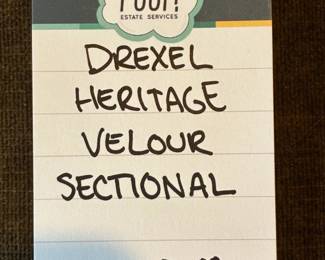 POOF!
ESTATE SERVICES
DREXEL
HERITAGE
VELOUR
SECTIONAL